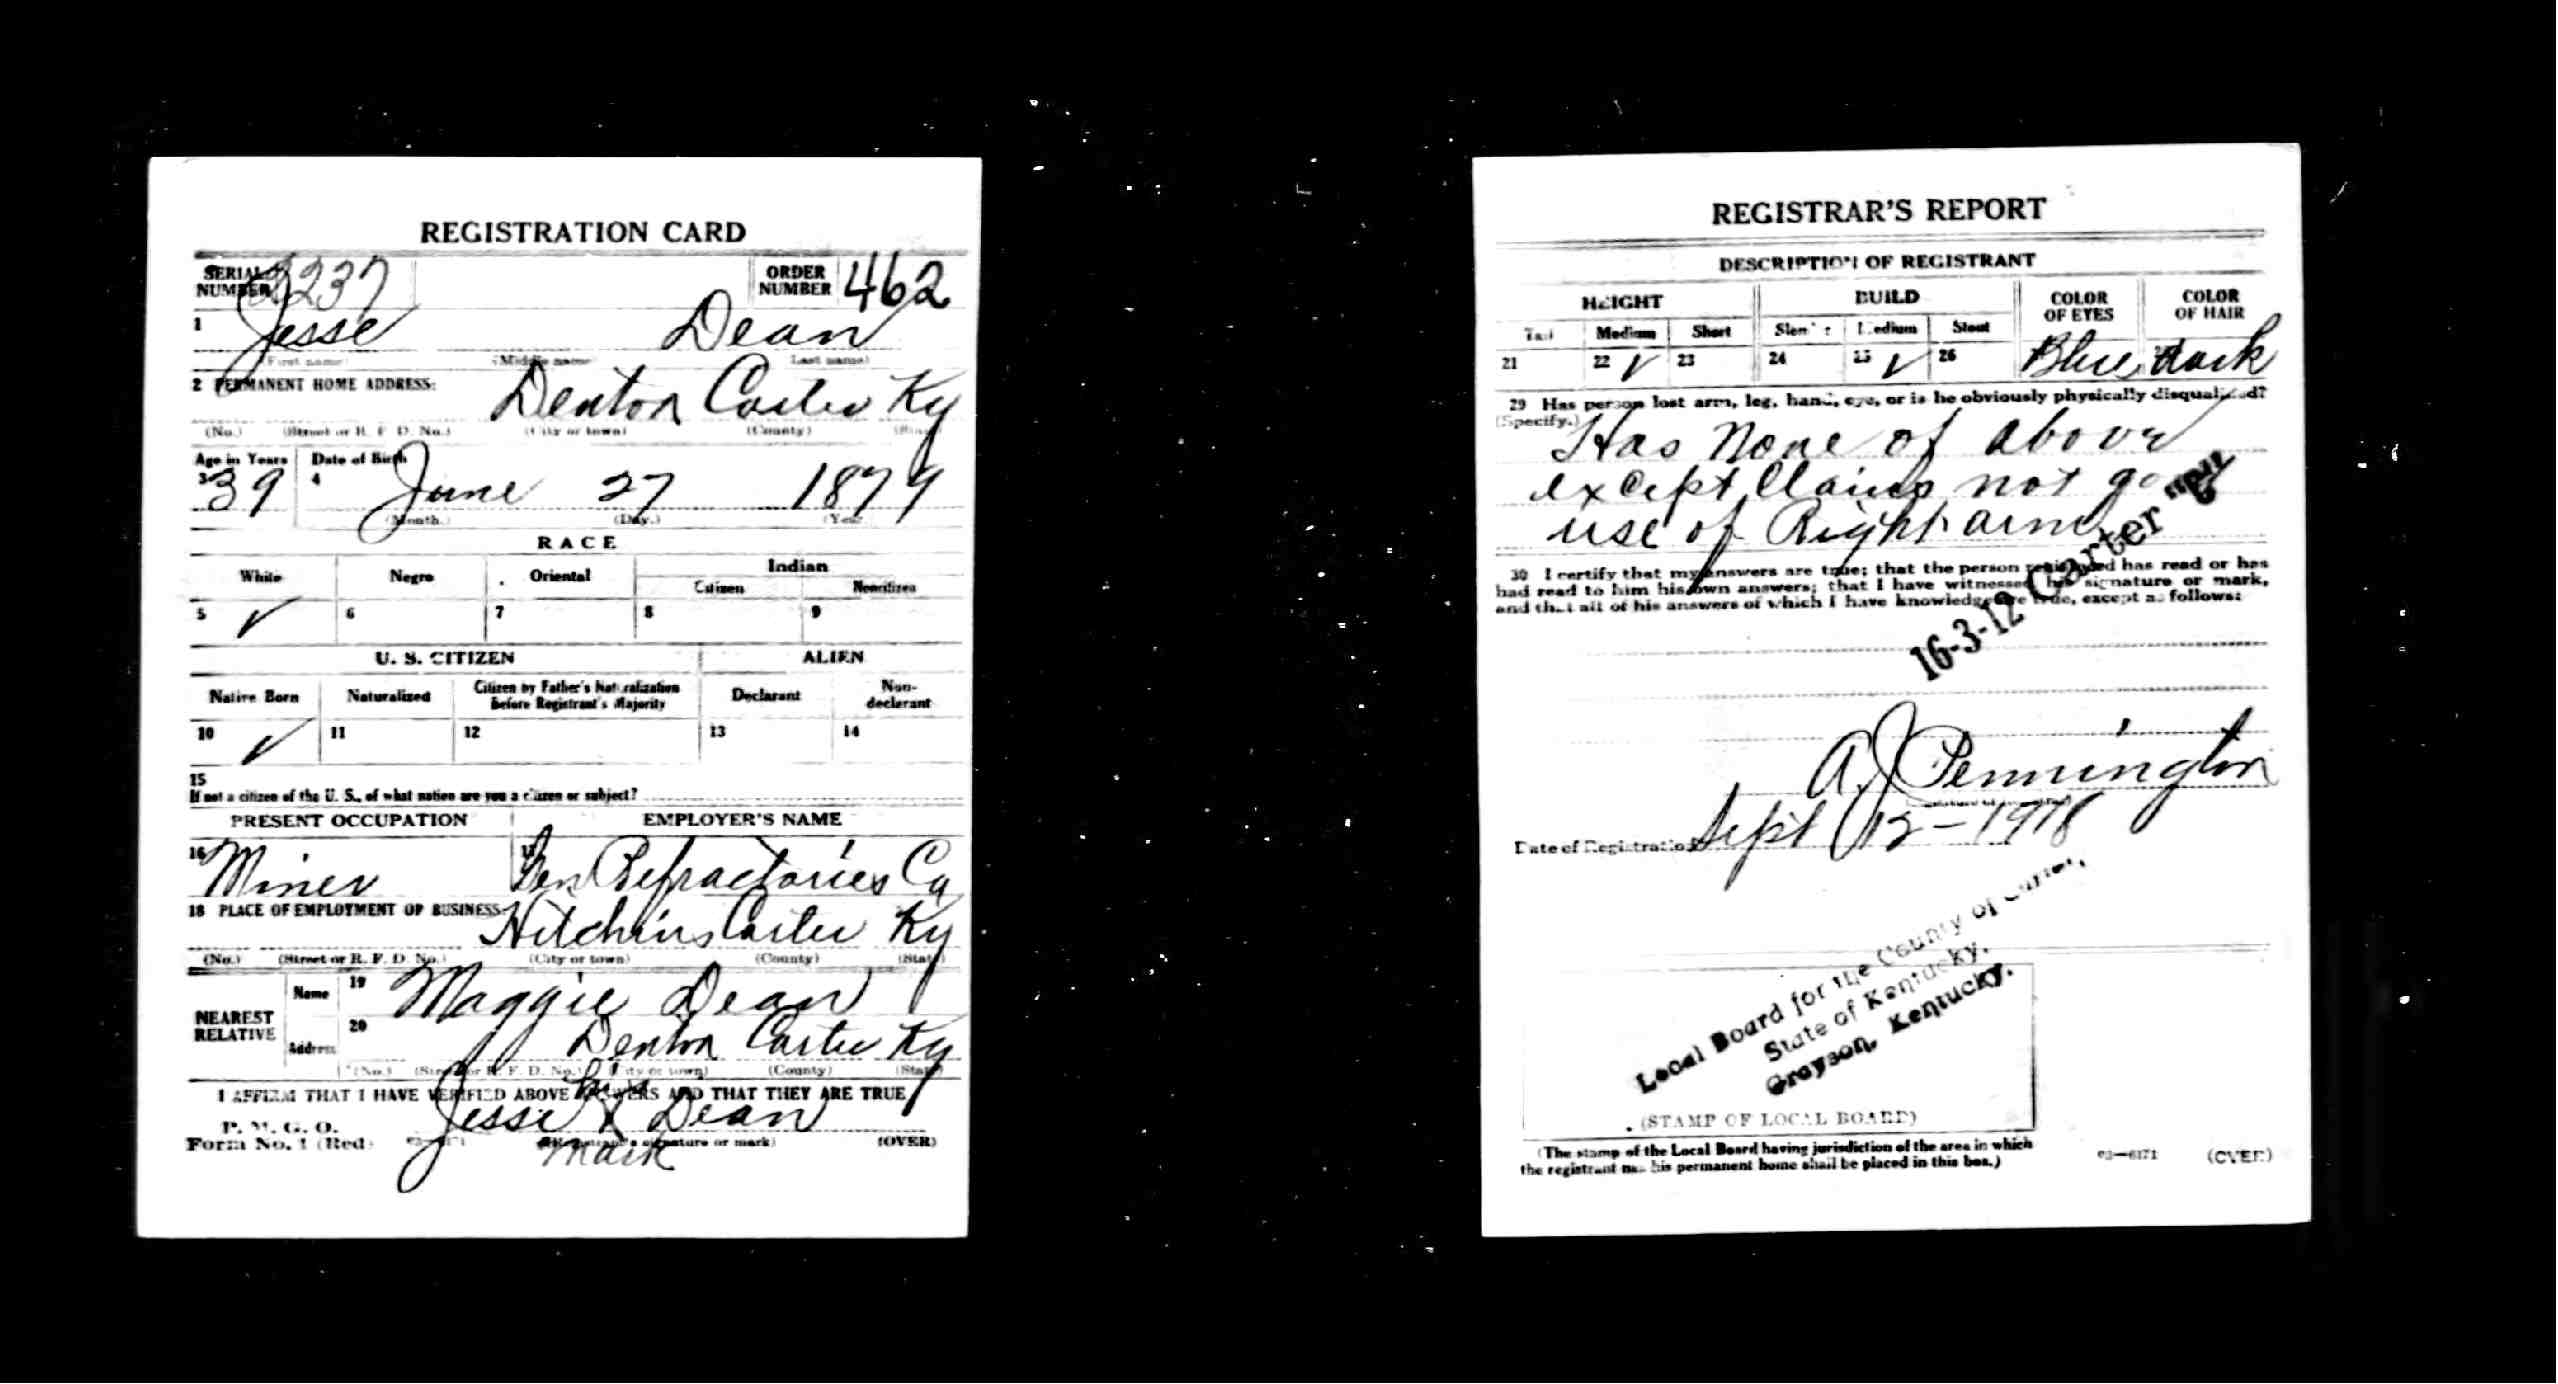 REGISTRATION CARD
SERIAL NUMBER 2237 ORDER NUMBER 462
1 Jesse Dean
(First name) (Middle name) Last name)
2 PERMANENT HOME ADDRESS: Denton Carter Ky
(No.) (Street or R. F. D. No.) (City or town) (County) (State)
Age in Years Date of Birth
3 39 4 June 27 1879
(Month.) (Day.) (Year.)
RACE
White Negro Oriental Indian
Citizen Noncitizen
5 ✓ 6 7 8 9
U. S. CITIZEN ALIEN
Native Born Naturalized Citizen by Father's Naturalization Before Registrant's Majority Declarant Non-declarant
10 ✓ 11 12 13 14
15
If not a citizen of the U. S., of what nation are you a citizen or subject?
PRESENT OCCUPATION EMPLOYER'S NAME
16 Miner 17 Gen Refractories Co
18 PLACE OF EMPLOYMENT OR BUSINESS: Hitchins Carter Ky
(No.) (Street or R. F. D. No.) (City or town) (County) (State)
NEAREST RELATIVE Name 19 Maggie Dean
Address 20 Denton Carter Ky
(No.) (Street or R. F. D. No.) (City or town) (County) (State)
I AFFIRM THAT I HAVE VERIFIED ABOVE ANSWERS AND THAT THEY ARE TRUE
his
P. M. G. O. Jesse X Dean
Form No. 1 (Red) (Registrant's signature or mark) (OVER)
mark
REGISTRAR'S REPORT
DESCRIPTION OF REGISTRANT
HEIGHT BUILD COLOR OF EYES COLOR OF HAIR
Tall Medium Short Slender Medium Stout
21 22 ✓ 23 24 25 ✓ 26 Blue dark
29 Has person lost arm, leg, hand, eye, or is he obviously physically disqualified?
(Specify.) Has None of above
except Claims not good
use of Right arm
30 I certify that my answers are true; that the person registered has read or has
had read to him his own answers; that I have witnessed his signature or mark,
and that all of his answers of which I have knowledge are true, except as follows:
16-3-12 Carter "C"
A J Pennington
Date of Registration Sept 12-1918
Local Board for the County of Carter,
State of Kentucky.
Grayson, Kentucky.
(STAMP OF LOCAL BOARD)
(The stamp of the Local Board having jurisdiction of the area in which
the registrant has his permanent home shall be placed in this box.)
03—6171 (OVER)